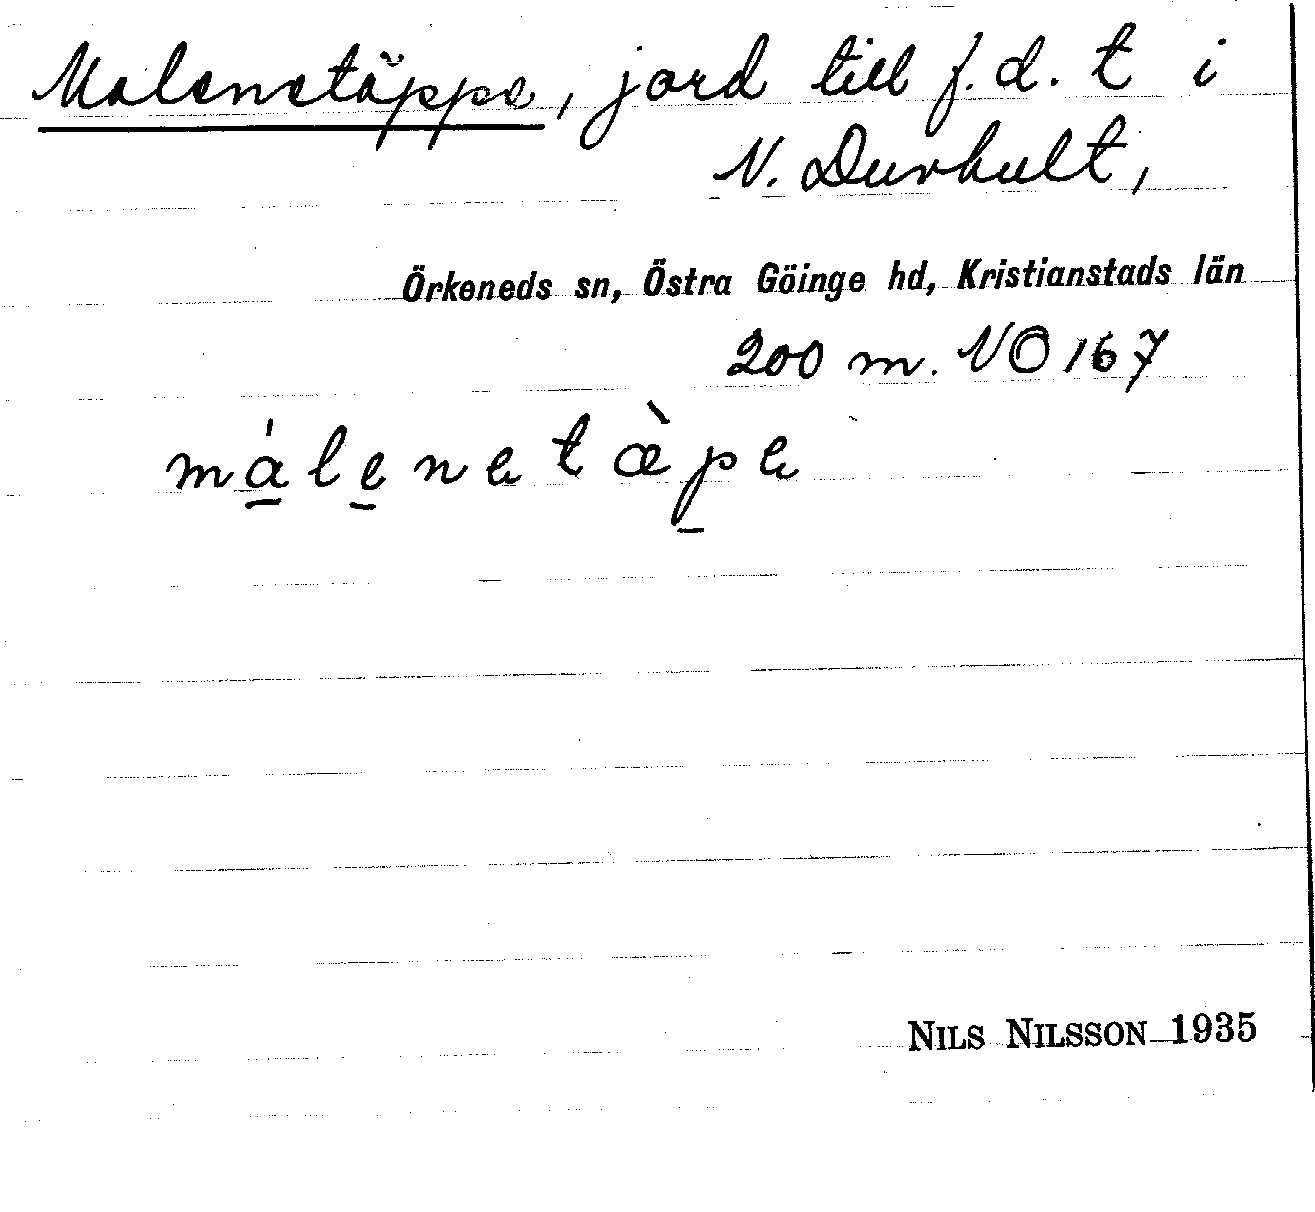 Malenetäppe, jord till f.d. t i
N. Duvhult,
Örkeneds sn, Östra Göinge hd, Kristianstads län
200 m. NO 167
málenetæ̀pe
NILS NILSSON 1935